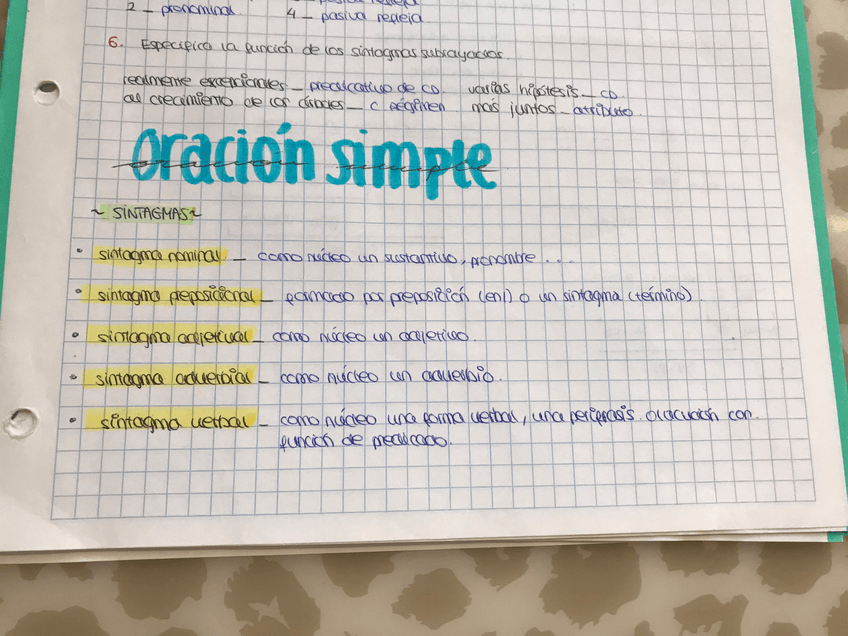 2 – pronominal. 4 – pasiva refleja
6. Especifica la función de los sintagmas subrayados.
realmente excepcionales – predicativo de CD. varias hipótesis – CD.
al crecimiento de los árboles – C Régimen más juntos – atributo.
oración simple
~ SINTAGMAS ~
• sintagma nominal – como núcleo un sustantivo, pronombre ...
• sintagma preposicional – formado por preposición (enl) o un sintagma (término)
• sintagma adjetival – como núcleo un adjetivo.
• sintagma adverbial – como núcleo un adverbio.
• sintagma verbal – como núcleo una forma verbal, una perífrasis. con
función de predicado.